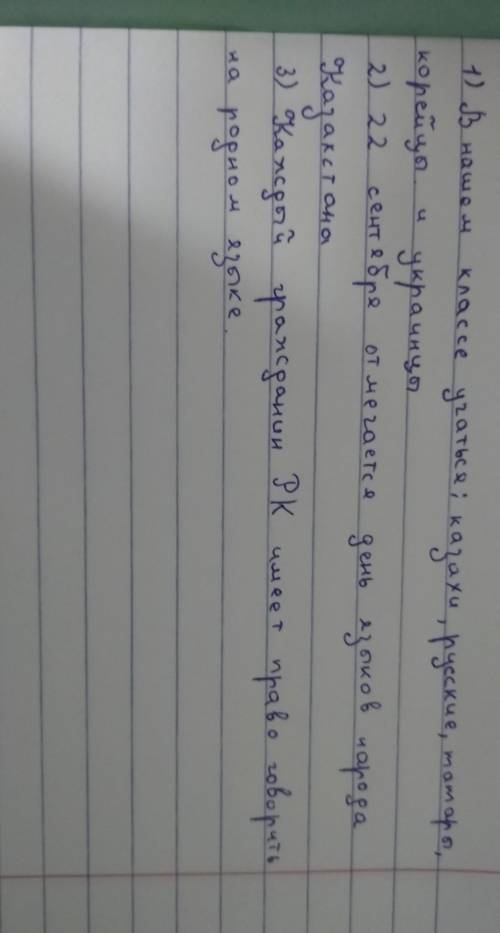 1) В нашем классе учаться; казахи, русские, татары,
корейцы и украинцы
2) 22 сентября отмечается день языков народа
Казахстана
3) Каждый гражданин РК имеет право говорить
на родном языке.